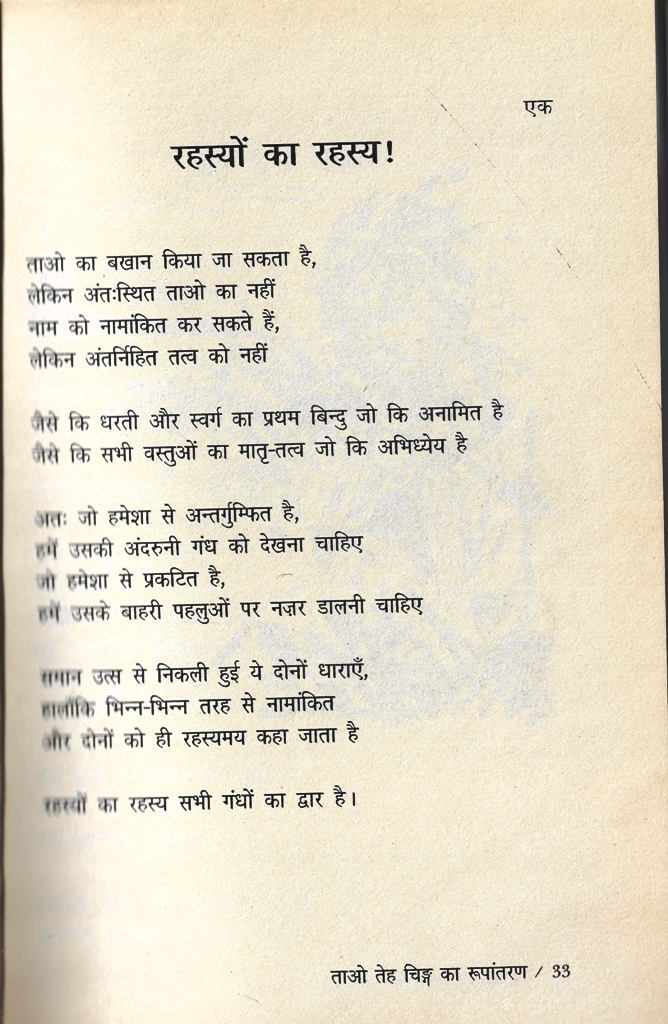 एक
रहस्यों का रहस्य!
ताओ का बखान किया जा सकता है,
लेकिन अंतःस्थित ताओ का नहीं
नाम को नामांकित कर सकते हैं,
लेकिन अंतर्निहित तत्व को नहीं
जैसे कि धरती और स्वर्ग का प्रथम बिन्दु जो कि अनामित है
जैसे कि सभी वस्तुओं का मातृ-तत्व जो कि अभिध्येय है
अतः जो हमेशा से अन्तर्गुम्फित है,
हमें उसकी अंदरुनी गंध को देखना चाहिए
जो हमेशा से प्रकटित है,
हमें उसके बाहरी पहलुओं पर नज़र डालनी चाहिए
समान उत्स से निकली हुई ये दोनों धाराएँ,
हालाँकि भिन्न-भिन्न तरह से नामांकित
और दोनों को ही रहस्यमय कहा जाता है
रहस्यों का रहस्य सभी गंधों का द्वार है।
ताओ तेह चिङ्ग का रूपांतरण / 33